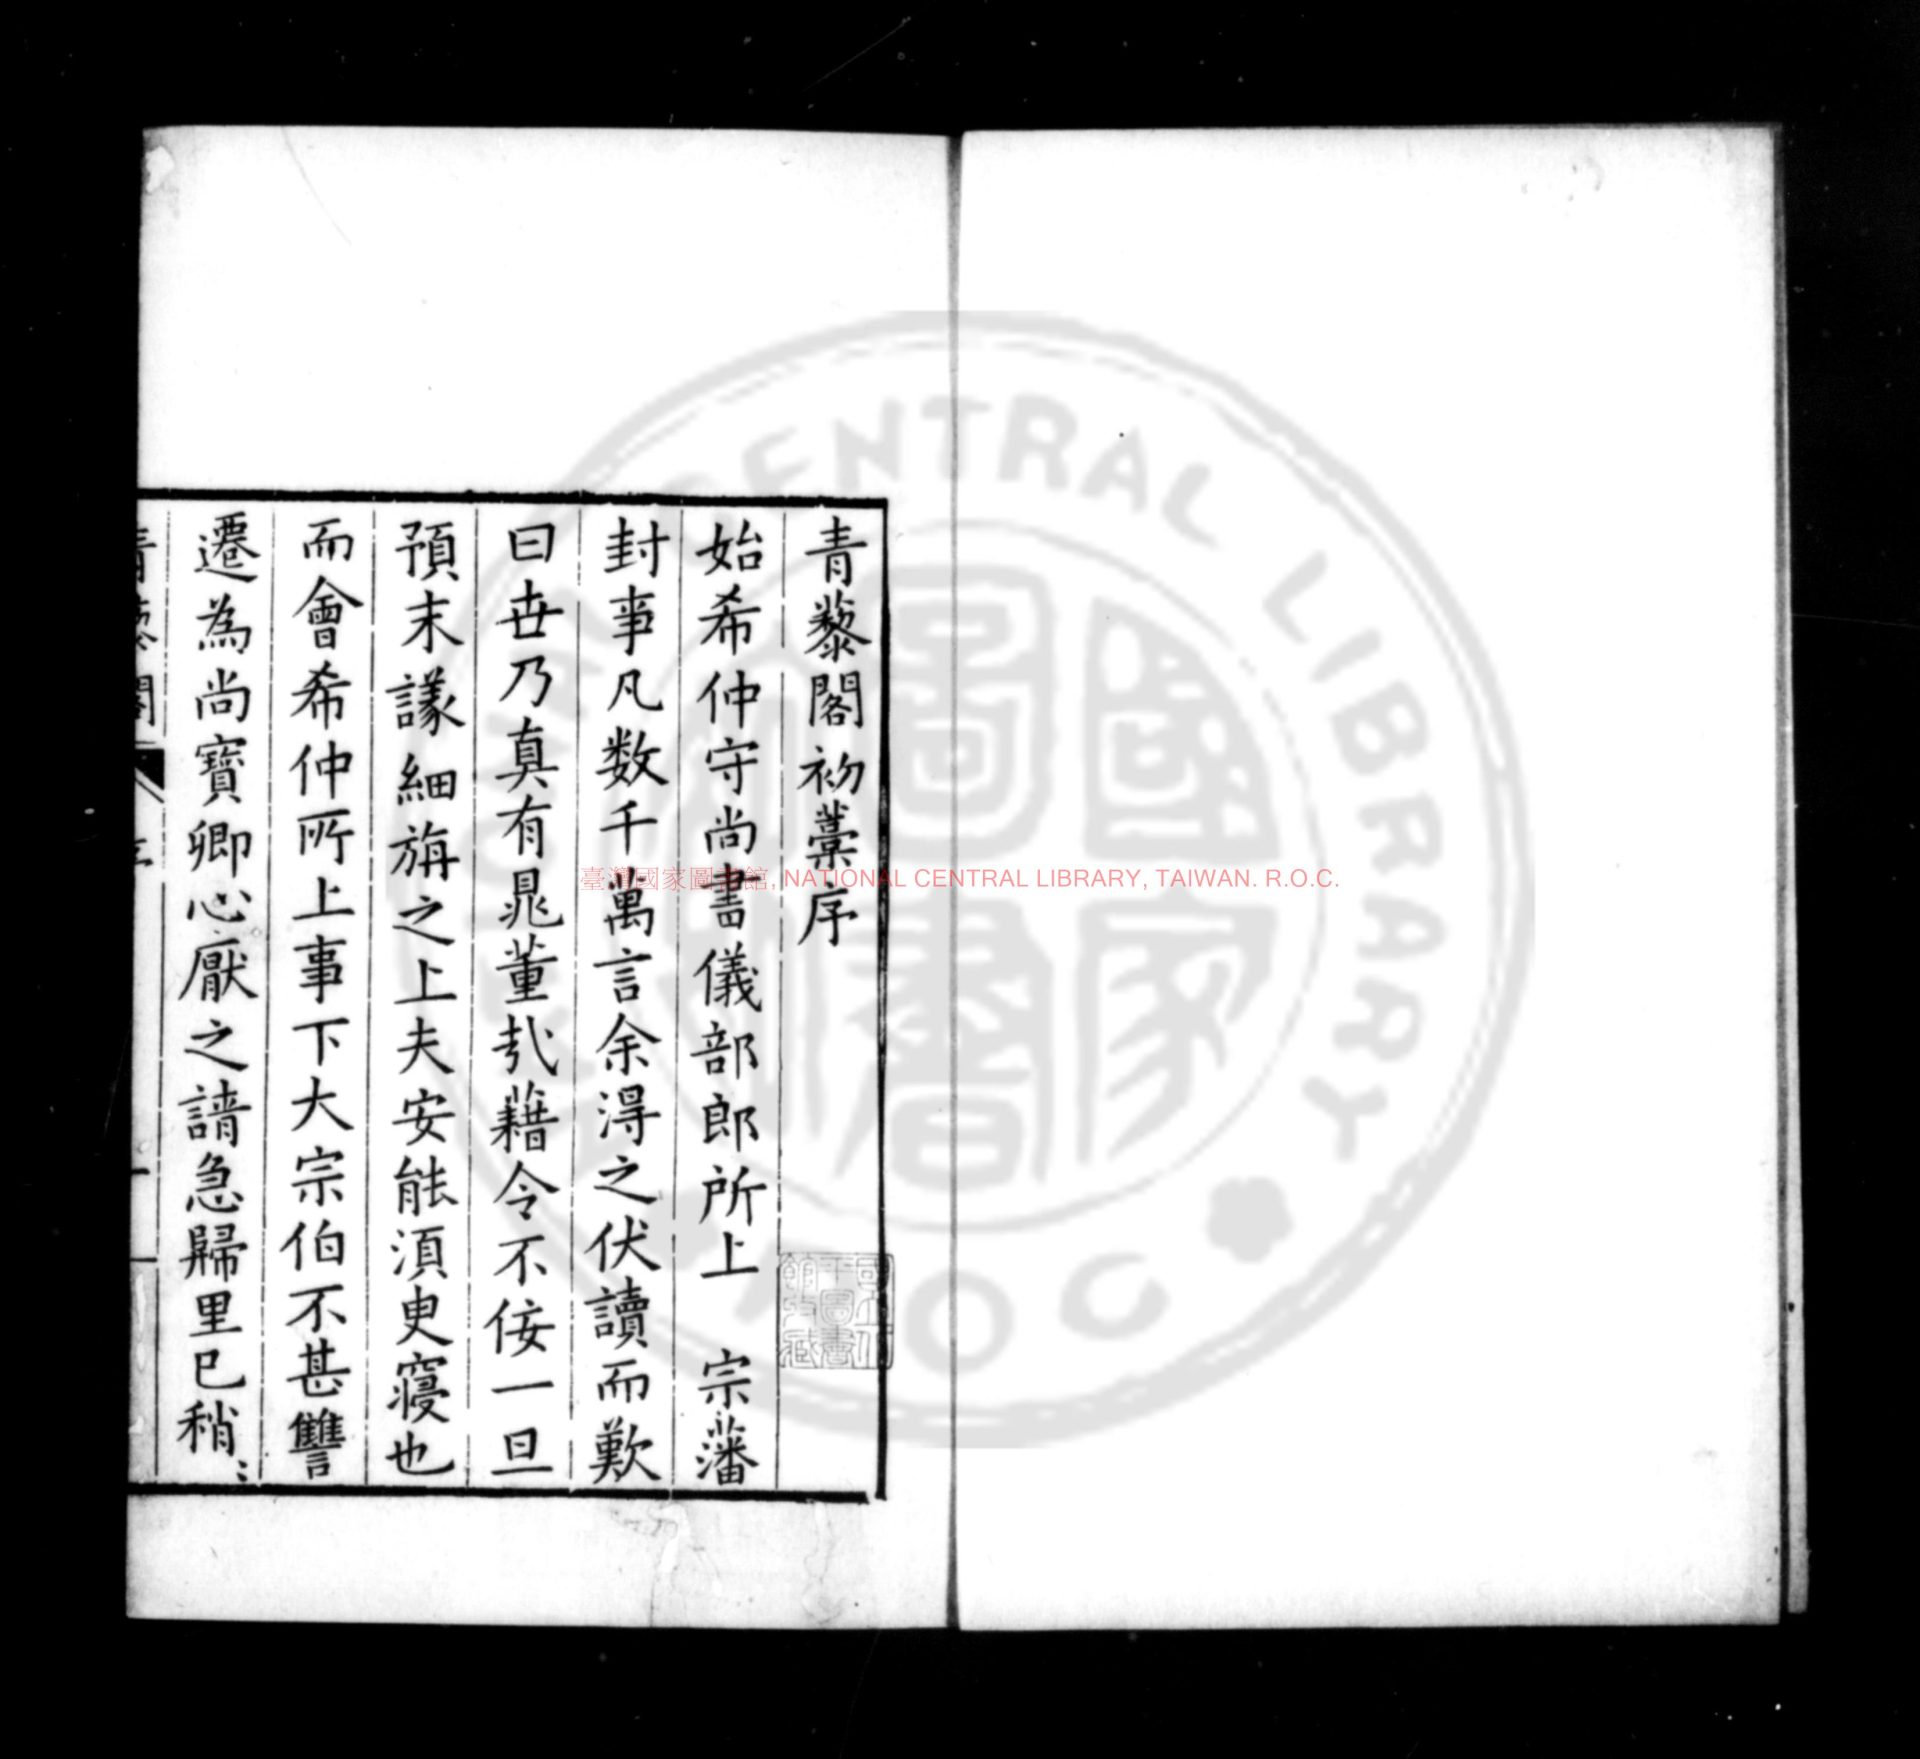 青藜閣初藁序
始希仲守尚書儀部郎所上　宗藩
封事凡数千萬言余淂之伏讀而歎
曰世乃真有晁董㢤藉令不佞一旦
預末議細旃之上夫安能湏臾寢也
而會希仲所上事下大宗伯不甚讐
遷為尚寶卿心厭之請急歸里巳稍
青藜閣
序
臺灣國家圖書館, NATIONAL CENTRAL LIBRARY, TAIWAN. R.O.C.
CENTRAL LIBRARY
國家圖書
R.O.C.